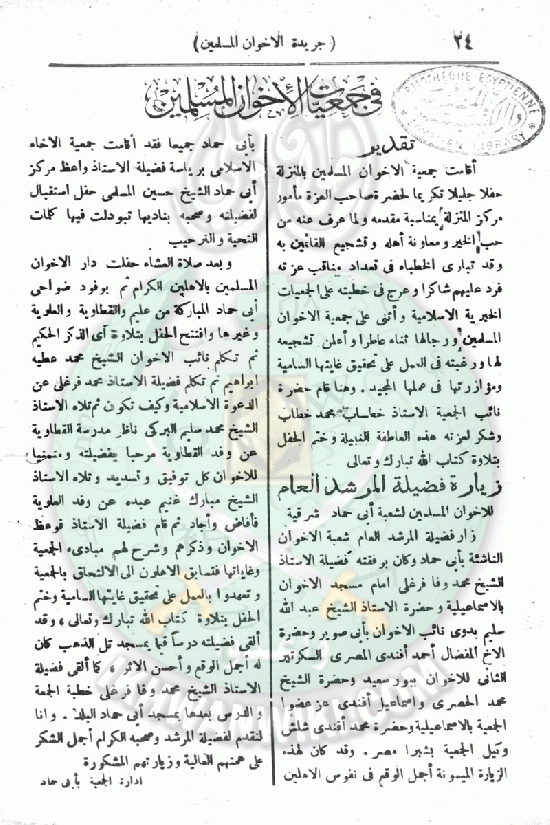 ٣٤
( جريدة الاخوان المسلمين )
فى جمعيات الأخوان المسلمين
تقدير
أقامت جمعية الاخوان المسلمين بالمنزلة
حفلا جليلا تكريما لحضرة صاحب العزة مأمور
مركز المنزلة بمناسبة مقدمه ولما عرف عنه من
حب الخير ومعاونة أهله وتشجيع القائمين به
وقد تبارى الخطباء فى تعداد مناقب عزته
فرد عليهم شاكرا وعرج فى خطبته على الجمعيات
الخيرية الاسلامية وأثنى على جمعية الاخوان
المسلمين ورجالها ثناء عاطرا وأعلن تشجيعه
لها ورغبته فى العمل على تحقيق غايتها السامية
ومؤازرتها فى عملها المجيد . وهنا قام حضرة
نائب الجمعية الاستاذ خطاب محمد خطاب
وشكر لعزته هذه العاطفة النبيلة وختم الحفل
بتلاوة كتاب الله تبارك وتعالى
زيارة فضيلة المرشد العام
للاخوان المسلمين لشعبة أبى حماد شرقية
زار فضيلة المرشد العام شعبة الاخوان
الناشئة بأبى حماد وكان برفقته فضيلة الاستاذ
الشيخ محمد وفا فرغلى امام مسجد الاخوان
بالاسماعيلية وحضرة الاستاذ الشيخ عبد الله
سليم بدوى نائب الاخوان بأبى صوير وحضرة
الاخ المفضال أحمد أفندى المصرى السكرتير
الثانى للاخوان ببور سعيد وحضرة الشيخ
محمد الحصرى واسماعيل أفندى عز عضوا
الجمعية بالاسماعيلية وحضرة محمد أفندى شلش
وكيل الجمعية بشبرا مصر . وقد كان لهذه
الزيارة الميمونة أجمل الوقع فى نفوس الاهلين
بأبى حماد جميعا فقد أقامت جمعية الاخاء
الاسلامى برياسة فضيلة الاستاذ واعظ مركز
أبى حماد الشيخ حسين المسلمى حفل استقبال
لفضيلته وصحبه بناديها تبودلت فيها كلمات
التحية والترحيب
وبعد صلاة العشاء حفلت دار الاخوان
المسلمين بالاهلين الكرام ثم بوفود ضواحى
أبى حماد المباركة من عليم والقطاوية والعلوية
وغيرها وافتتح الحفل بتلاوة آى الذكر الحكيم
ثم تكلم نائب الاخوان الشيخ محمد عطيه
ابراهيم ثم تكلم فضيلة الاستاذ محمد فرغلى عن
الدعوة الاسلامية وكيف تكون ثم تلاه الاستاذ
الشيخ محمد سليم البركى ناظر مدرسة القطاوية
عن وفد القطاوية مرحبا بفضيلته ومتمنيا
للاخوان كل توفيق وتسديد وتلاه الاستاذ
الشيخ مبارك غنيم عبده عن وفد العلوية
فأفاض وأجاد ثم قام فضيلة الاستاذ فوعظ
الاخوان وذكرهم وشرح لهم مبادىء الجمعية
وغاياتها فتسابق الاهلون الى الالتحاق بالجمعية
وتعهدوا بالعمل على تحقيق غايتها السامية وختم
الحفل بتلاوة كتاب الله تبارك وتعالى ، وقد
ألقى فضيلته درساً قيما بمسجد تل الذهب كان
له أجمل الوقع وأحسن الاثر ، كما ألقى فضيلة
الاستاذ الشيخ محمد وفا فرغلى خطبة الجمعة
والدرس بعدها بمسجد أبى حماد البلد . وانا
لنتقدم لفضيلة المرشد وصحبه الكرام أجمل الشكر
على همتهم العالية وزيارتهم المشكورة
ادارة الجمعية بأبى حماد
WWW.IKHWANWIKI.COM